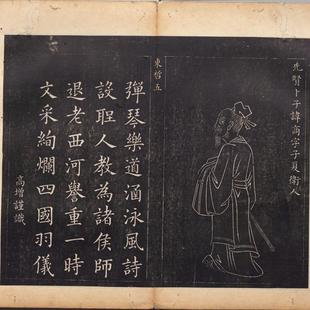 先賢卜子諱商字子夏衛人
東哲五
彈琴樂道涵泳風詩
設聖人教為諸侯師
退老西河譽重一時
文采絢爛四國羽儀
高增謹識